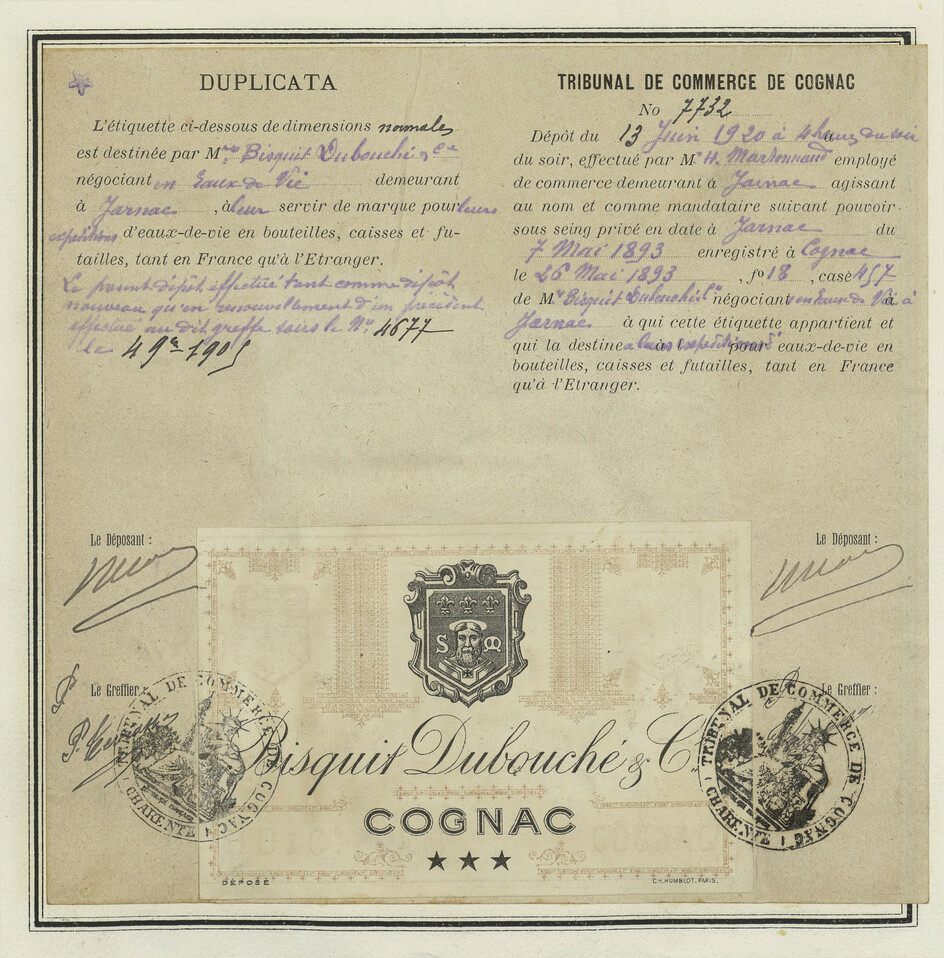 DUPLICATA
L'étiquette ci-dessous de dimensions normales
est destinée par Mrs Bisquit Dubouché & Cie
négociant en Eaux de Vie demeurant
à Jarnac, à leur servir de marque pour leurs
expéditions d'eaux-de-vie en bouteilles, caisses et fu-
tailles, tant en France qu'à l'Etranger.
Le présent dépôt effectué tant comme dépôt
nouveau qu'en renouvellement d'un précédent
effectué au dit greffe sous le No 4677
le 4 9bre 1905
TRIBUNAL DE COMMERCE DE COGNAC
No 7732
Dépôt du 13 Juin 1920 à 4 heures du soir
du soir, effectué par M. H. employé
de commerce demeurant à Jarnac agissant
au nom et comme mandataire suivant pouvoir
sous seing privé en date à Jarnac du
7 Mai 1893 enregistré à Cognac
le 26 Mai 1893, fo 18, case 457
de Mrs Bisquit Dubouché & Cie négociant en Eaux de Vie à
Jarnac à qui cette étiquette appartient et
qui la destine à leurs expéditions d'eaux-de-vie en
bouteilles, caisses et futailles, tant en France
qu'à l'Etranger.
Le Déposant :
Le Déposant :
Le Greffier :
Le Greffier :
TRIBUNAL DE COMMERCE DE COGNAC
CHARENTE
TRIBUNAL DE COMMERCE DE COGNAC
CHARENTE
S M
Bisquit Dubouché & Co
COGNAC
★ ★ ★
DÉPOSÉ
CH. HUMBLOT. PARIS.